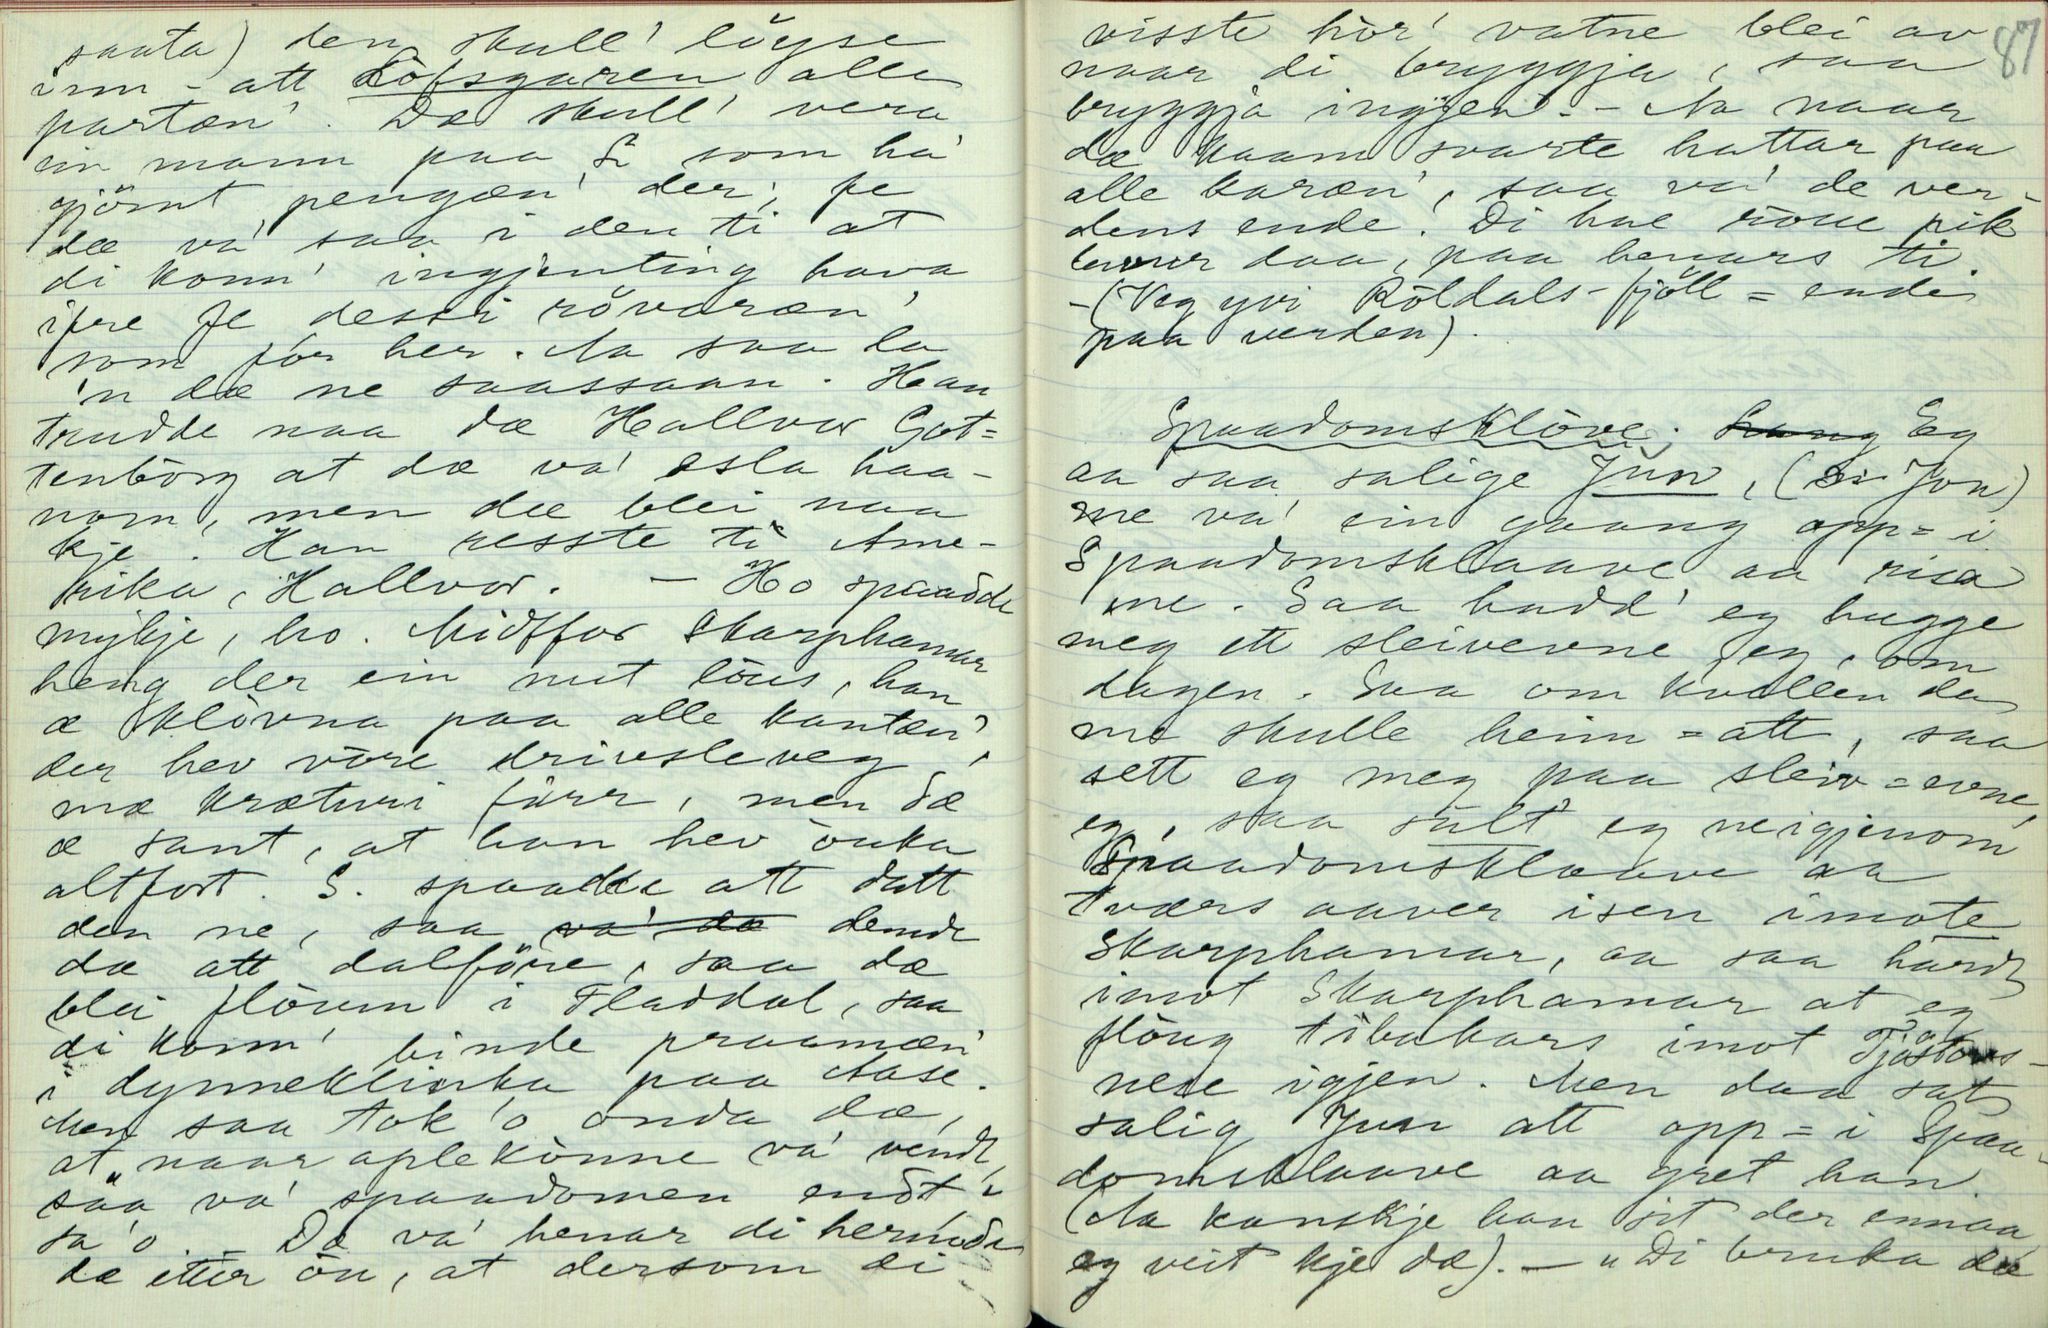 saata) den skull' löyse
inn - att Lofsgaren alle
partæn'. Dæ skull' vera
ein mann paa L som ha'
gjömt pengæn' der; fe
dæ va' saa i den ti at
di konn' ingjenting hava
ifre fe dessi rövaræn'
som för her. Aa saa la
'n dæ ne saassaan. Han
trudde naa dæ Hallvor Got=
tenborg at dæ va' esla haa-
nom', men dæ blei naa
kje'. Han resste ti Ame-
rika, Hallvor. — Ho spaadde
mykje, ho. Midtfor Skarphamar
heng der ein nut löus, han
æ klövna paa alle kantæn',
der hev vöre drivsleveg
mæ kræturi förr, men dæ
æ sant, at han hev öuka
altfort. S. spaadde att datt
den ne, saa va' dæ demde
dæ att dalföre, saa dæ
blei flöum i Fladdal, saa
di konn' binde praamæn'
i dynneklinka paa Aase.
Men saa tok 'o onda dæ,
at „naar aplekönne va' vendt,
saa va' spaadomen endt"
sa' o. — Dæ va' henar di hermde
dæ etter öu, at dersom di
87
visste hör' vatne blei av
naar di bryggja, saa
bryggja ingjen. — Aa naar
dæ kaam svarte hattar paa
alle karæn', saa va' de ver-
dens ende. Di hae röue pik
luvur daa, paa henars ti.
- (Veg yvi Röldals-fjöll = ende
paa verden).
Spaadomsklöve. Eg
aa saa salige Jun, (Jon)
me va' ein gaang opp=i
Spaadomsklaave aa risa
me. Saa hadd' eg hugge
meg ett sleivevne eg, om
dagen. Saa om kvellen da
me skulle heim=att, saa
sett eg meg paa sleiv=evne,
eg, saa sult eg neigjenom
Spaadomsklaave aa
tværs aaver isen imote
Skarphamar, aa saa hardt
imot Skarphamar at eg
flöug tibakars imot
nese igjen. Men daa sat
salig Jun att opp=i Spaa-
domsklaave aa gret han.
(Aa kanskje han sit der ennaa,
eg veit kje dæ). — „Di bruka dæ